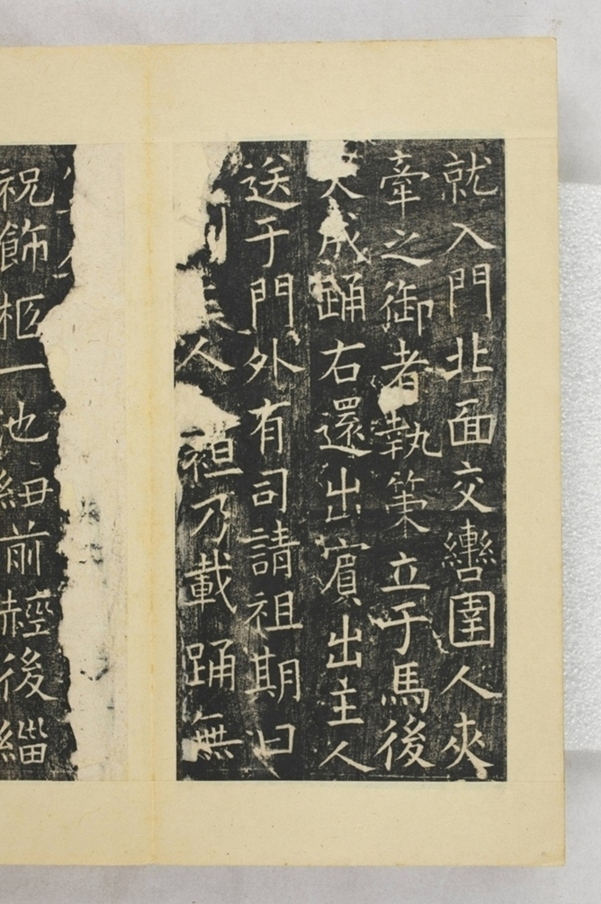 就入門北面交轡圉人夾
牽之御者執策立于馬後
成踊右還出賓出主人
送于門外有司請祖期曰
人袒乃載踊無
祝飾柩一池紐前䞓後緇